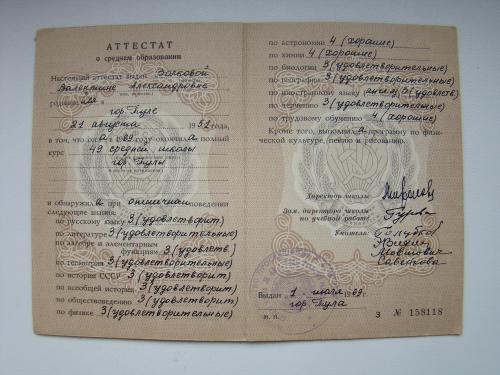 АТТЕСТАТ
о среднем образовании
Настоящий аттестат выдан Волковой
Валентине Александровне
родившейся в
гор. Туле
21 августа 1951 года,
в том, что она в 1969 году окончила полный
курс 49 средней школы
гор. Тулы
и обнаружила при отличном поведении
следующие знания:
по русскому языку 3 (удовлетворит)
по литературе 3 (удовлетворительные)
по алгебре и элементарным
функциям 3 (удовлетв)
по геометрии 3 (удовлетворительные)
по истории СССР 3 (удовлетворит)
по всеобщей истории 3 (удовлетворит)
по обществоведению 3 (удовлетворит)
по физике 3 (удовлетворительные)
по астрономии 4 (хорошие)
по химии 4 (хорошие)
по биологии 3 (удовлетворительные)
по географии 3 (удовлетворительные)
по иностранному языку англ. 3 (удовлетв)
по черчению 3 (удовлетворительные)
по трудовому обучению 4 (хорошие)
Кроме того, выполнила программу по физи-
ческой культуре, пению и рисованию.
Директор школы
Зам. директора школы
по учебной работе
Учителя:
Голубков
Савенкова
Выдан 1 июля 1969 г.
гор. Тула
М. П.
З № 158118